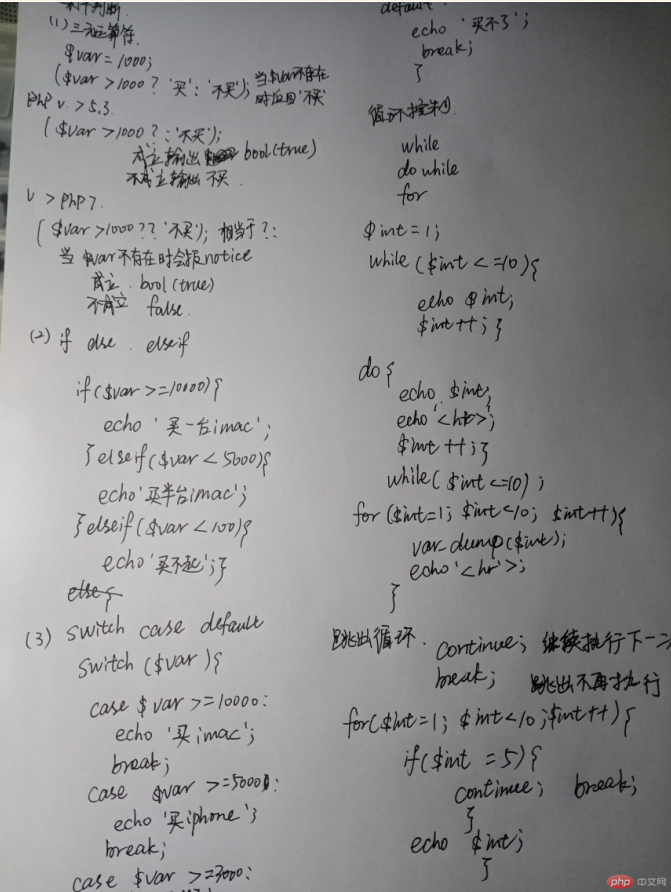 条件判断
(1) 三元运算符
$var = 1000;
($var > 1000 ? '买' : '不买'); 当$var不存在
时返回'不买'
php v. > 5.3
($var > 1000 ? : '不买');
成立输出 bool(true)
不成立输出 不买
v > php7.
($var > 1000 ?? '不买'); 相当于 ?:
当 $var不存在时会报notice
成立. bool(true)
不成立 false.
(2) if else . elseif
if($var >= 10000){
echo '买一台imac';
}elseif($var < 5000){
echo '买半台imac';
}elseif($var < 100){
echo '买不起';}
else{
(3) switch case default
switch ($var){
case $var >= 10000:
echo '买imac';
break;
case $var >= 5000:
echo '买iphone';
break;
case $var >= 3000:
default:
echo '买不了';
break;
}
循环控制.
while
do while
for
$int = 1;
while ($int <= 10){
echo $int;
$int ++; }
do {
echo $int;
echo '<hr>';
$int ++; }
while( $int <= 10) ;
for ($int=1; $int<10; $int++){
var_dump($int);
echo '<hr'>;
}
跳出循环. continue; 继续执行下一
break; 跳出不再执行
for($int=1; $int<10 ;$int++){
if($int = 5){
continue; break;
}
echo $int;
}
php 中文网